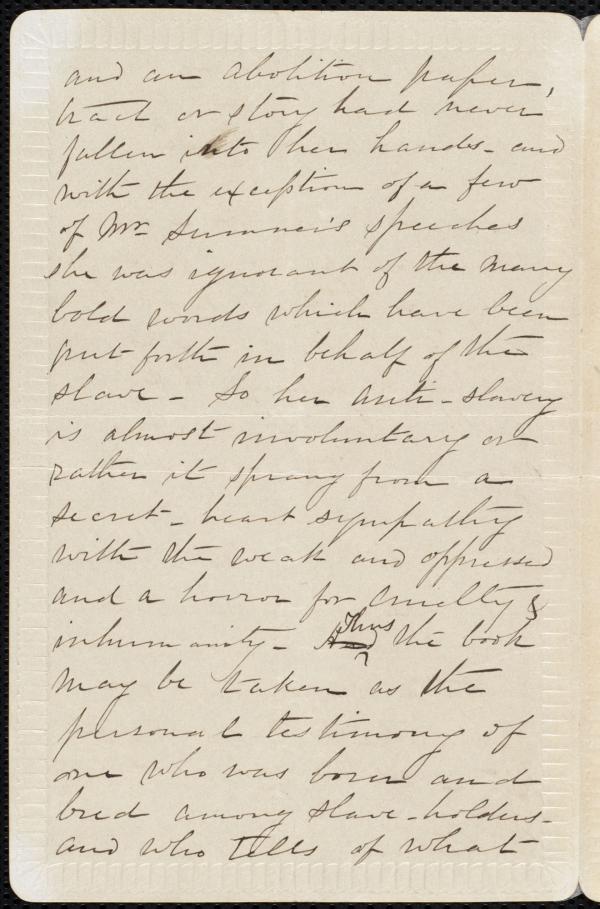 and an abolition paper,
tract or story had never
fallen into her hands - and
with the exception of a few
of Mr Sumner's speeches
she was ignorant of the many
bold words which have been
put forth in behalf of the
slave - So her anti-slavery
is almost involuntary or
rather it sprang from a
secret - heart sympathy
with the weak and oppressed
and a horror for cruelty &
inhumanity - Thus the book
may be taken as the
personal testimony of
one who was born and
bred among slave-holders -
and who tells of what